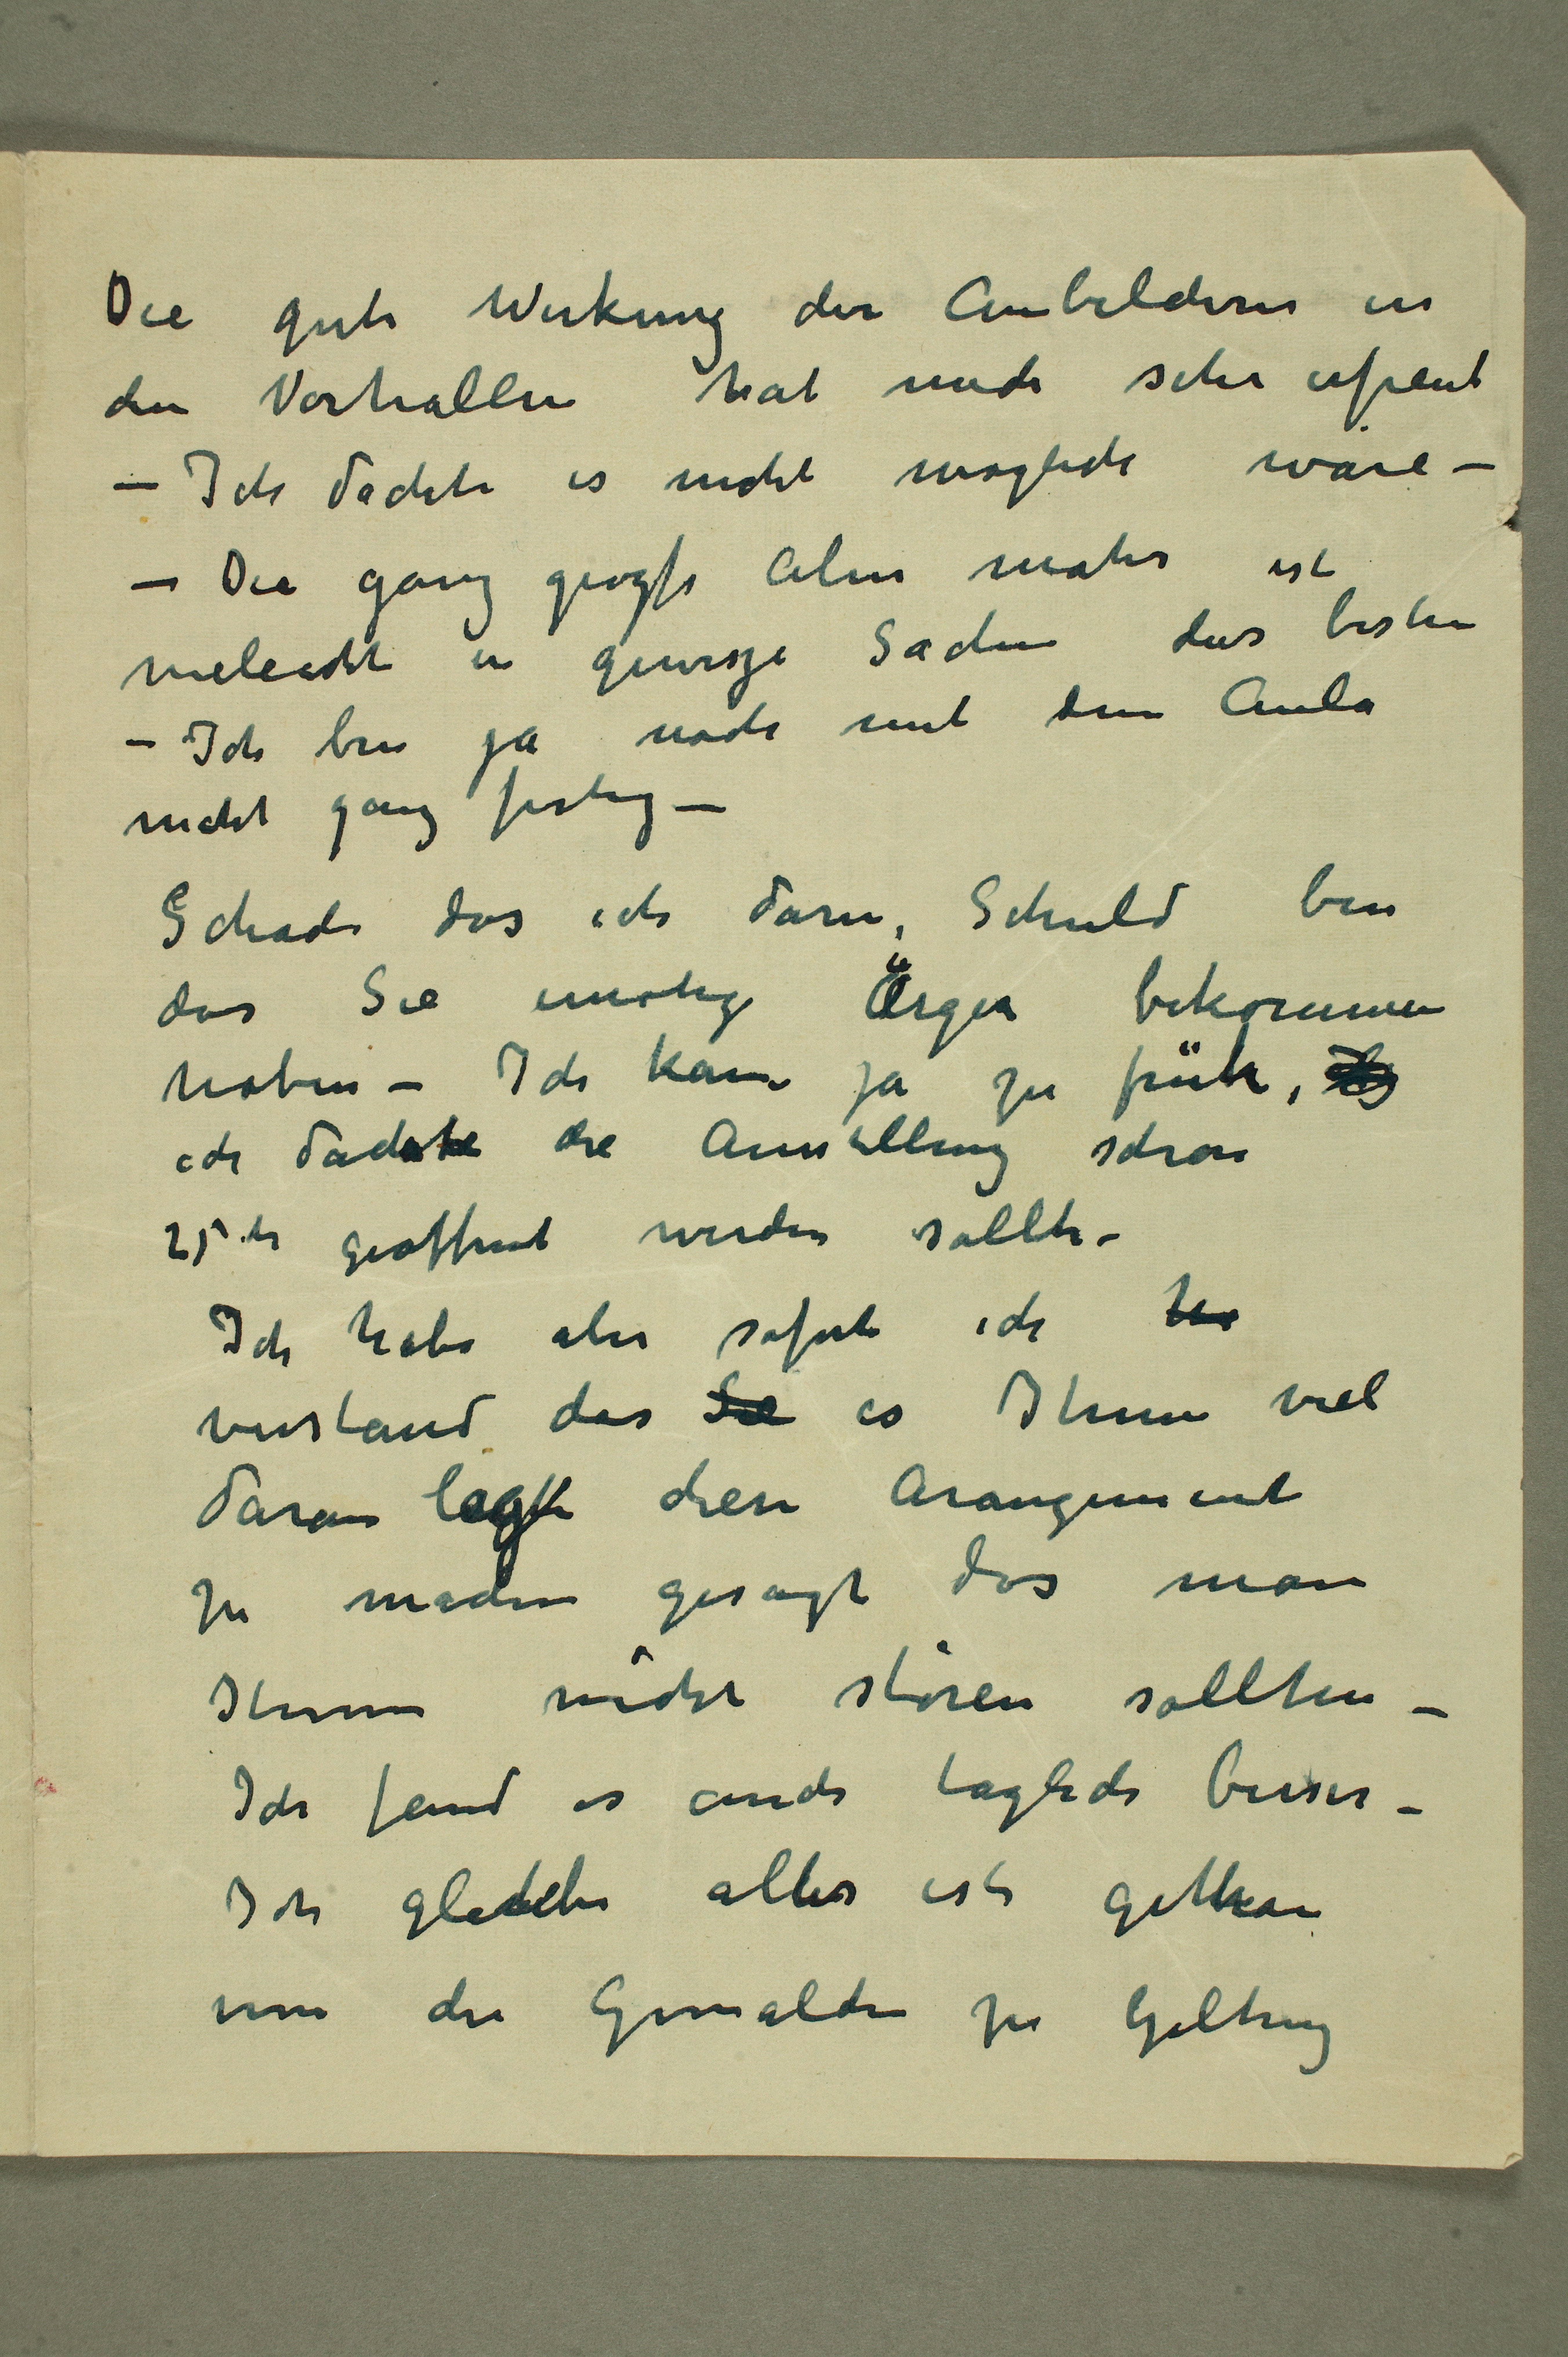 Die gute Wirkung der Aulabildern in
den Vorhallen hat mich sehr erfreut
– Ich dachte es nicht möglich wäre –
– Die ganz grosse Alma mater ist
vieleicht in gewisze Sachen das besten
– Ich bin ja noch mit dem Aula
nicht ganz fertig –
Schade das ich darin, Schuld bin
das Sie unötig Ärger bekommen
haben – Ich kam ja zu früh,
ich dachte die Ausstellung schon
25te geöffnet werden sollte –
Ich habe aber soforte ich
verstand das Sie es Ihnen viel
daran legte diese Arangement
zu machen gesagt das man
Ihnen nicht stören sollten –
Ich fand es auch taglich besser –
Ich glaube alles ist gethan
um die Gemälden zu Geltung